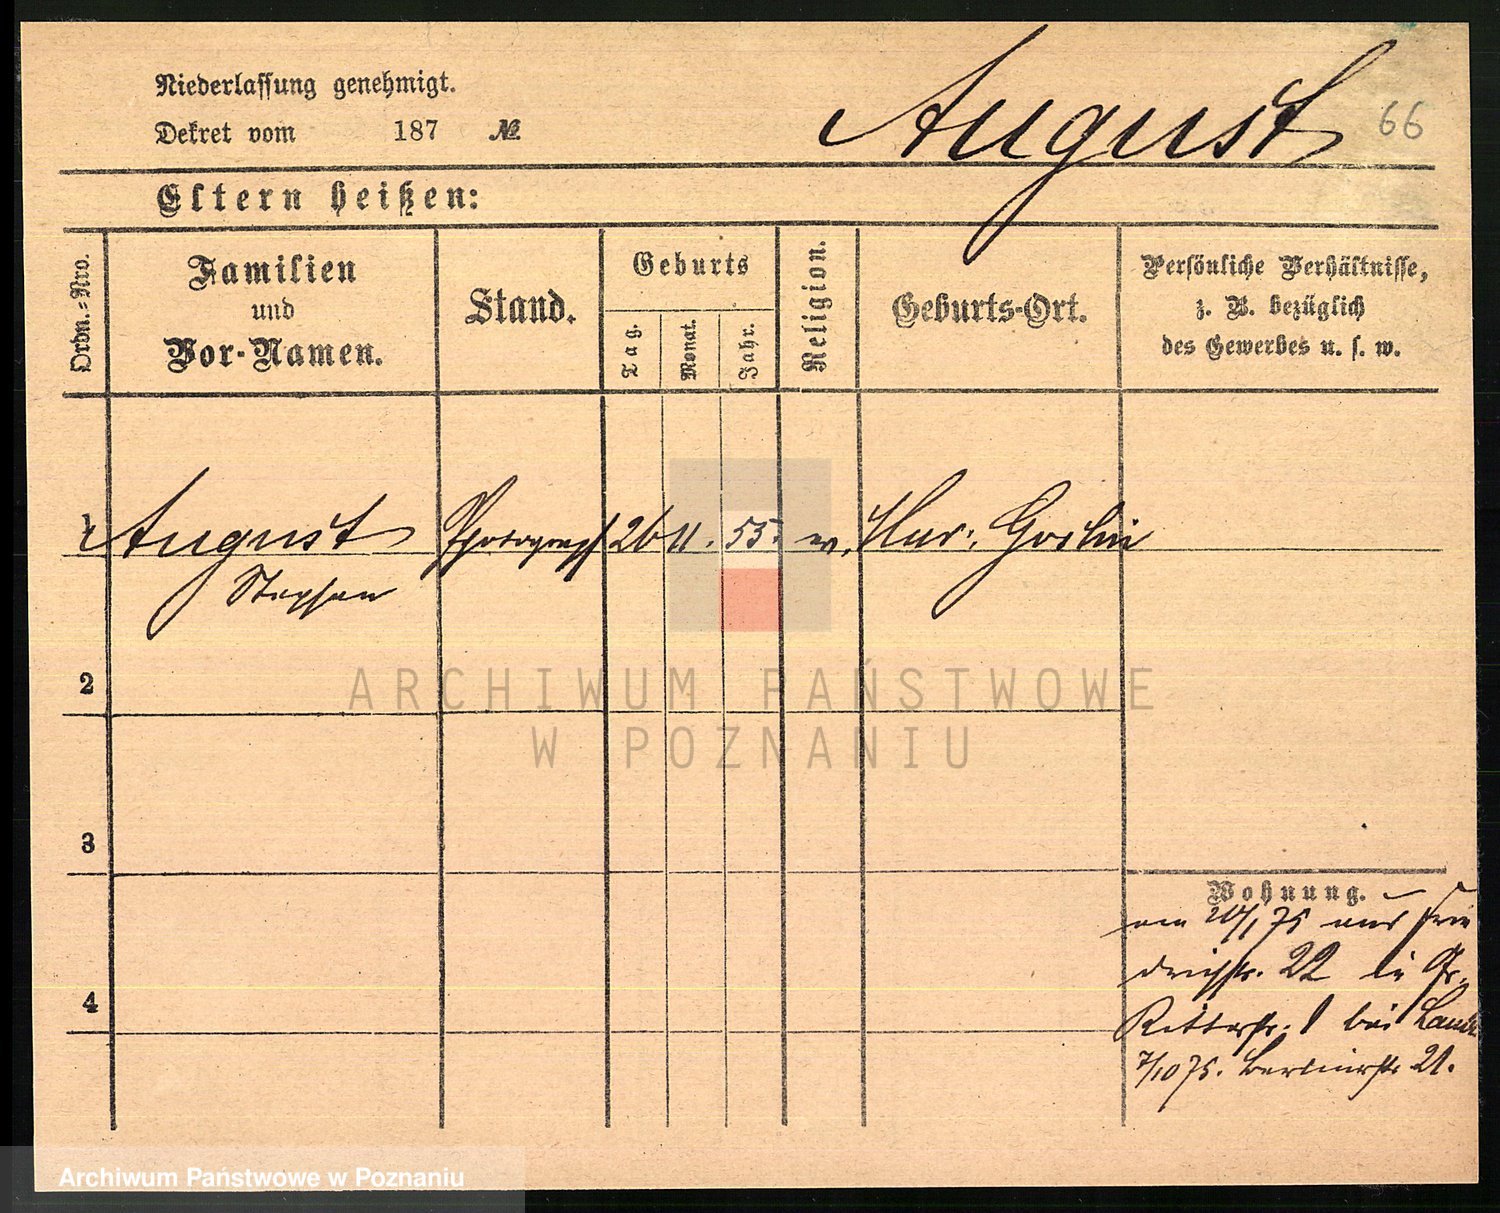 Niederlassung genehmigt.
Dekret vom 187 №
August 66
Eltern heißen:
Ordn.=Nro.
Familien
und
Vor-Namen.
Stand.
Geburts
Tag.
Monat.
Jahr.
Religion.
Geburts-Ort.
Persönliche Verhältnisse,
z. B. bezüglich
des Gewerbes u. s. w.
1 August Photograph 26 11. 55. Mur. Goslin
Stephan
ARCHIWUM PAŃSTWOWE
W POZNANIU
2
3
4
Wohnung.
am 20/1 75 aus Frie
drichstr. 22 in Gr.
Ritterstr. 1 bei
7/10 75. Berlinerstr 21.
Archiwum Państwowe w Poznaniu